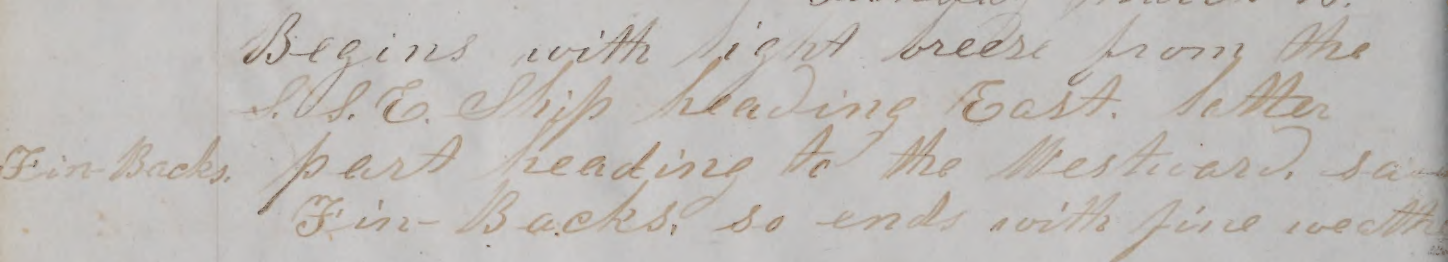 Begins with light breeze from the
S. S. E. Ship heading East. latter
Fin-Backs. part heading to the Westward. saw
Fin-Backs. so ends with fine weath